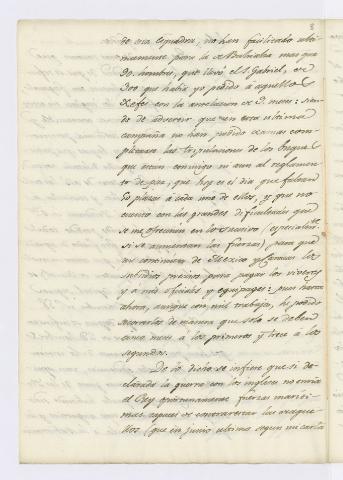 de esa Esquadra, no han facilitado ulti-
mamente para la de Bulnialda mas que
90. hombres, que llevó el S. Gabriel, de
300 que habia yo pedido à aquellos
Xefes con la antelacion de 3. meses: sien-
do de advertir que en esta ultima
campaña no han podido darme com-
pletadas las tripulaciones de los buques
que estan conmigo ni aun al reglamen-
to de paz, que hoy es el dia que faltan
plazas à cada uno de ellos, y que no
cuento con las grandes dificultades que
se me ofrecen en lo sucesivo (especialmte.
si se aumentan las fuerzas) para que
me continuen de Mexico y Caracas los
subsidios precisos para pagar los viveres
y a mis oficiales y equipages: pues hasta
ahora, aunque con mil trabajos, he podido
socorrerlos de manera que solo se deben
cinco meses à los primeros y trece à los
segundos.
De lo dicho se infiere que si de-
clarada la guerra con los ingleses no envia
el Rey oportunamente fuerzas mariti-
mas capaces de contrarrestar las de aque-
llos (que en junio ultimo segun mi carta